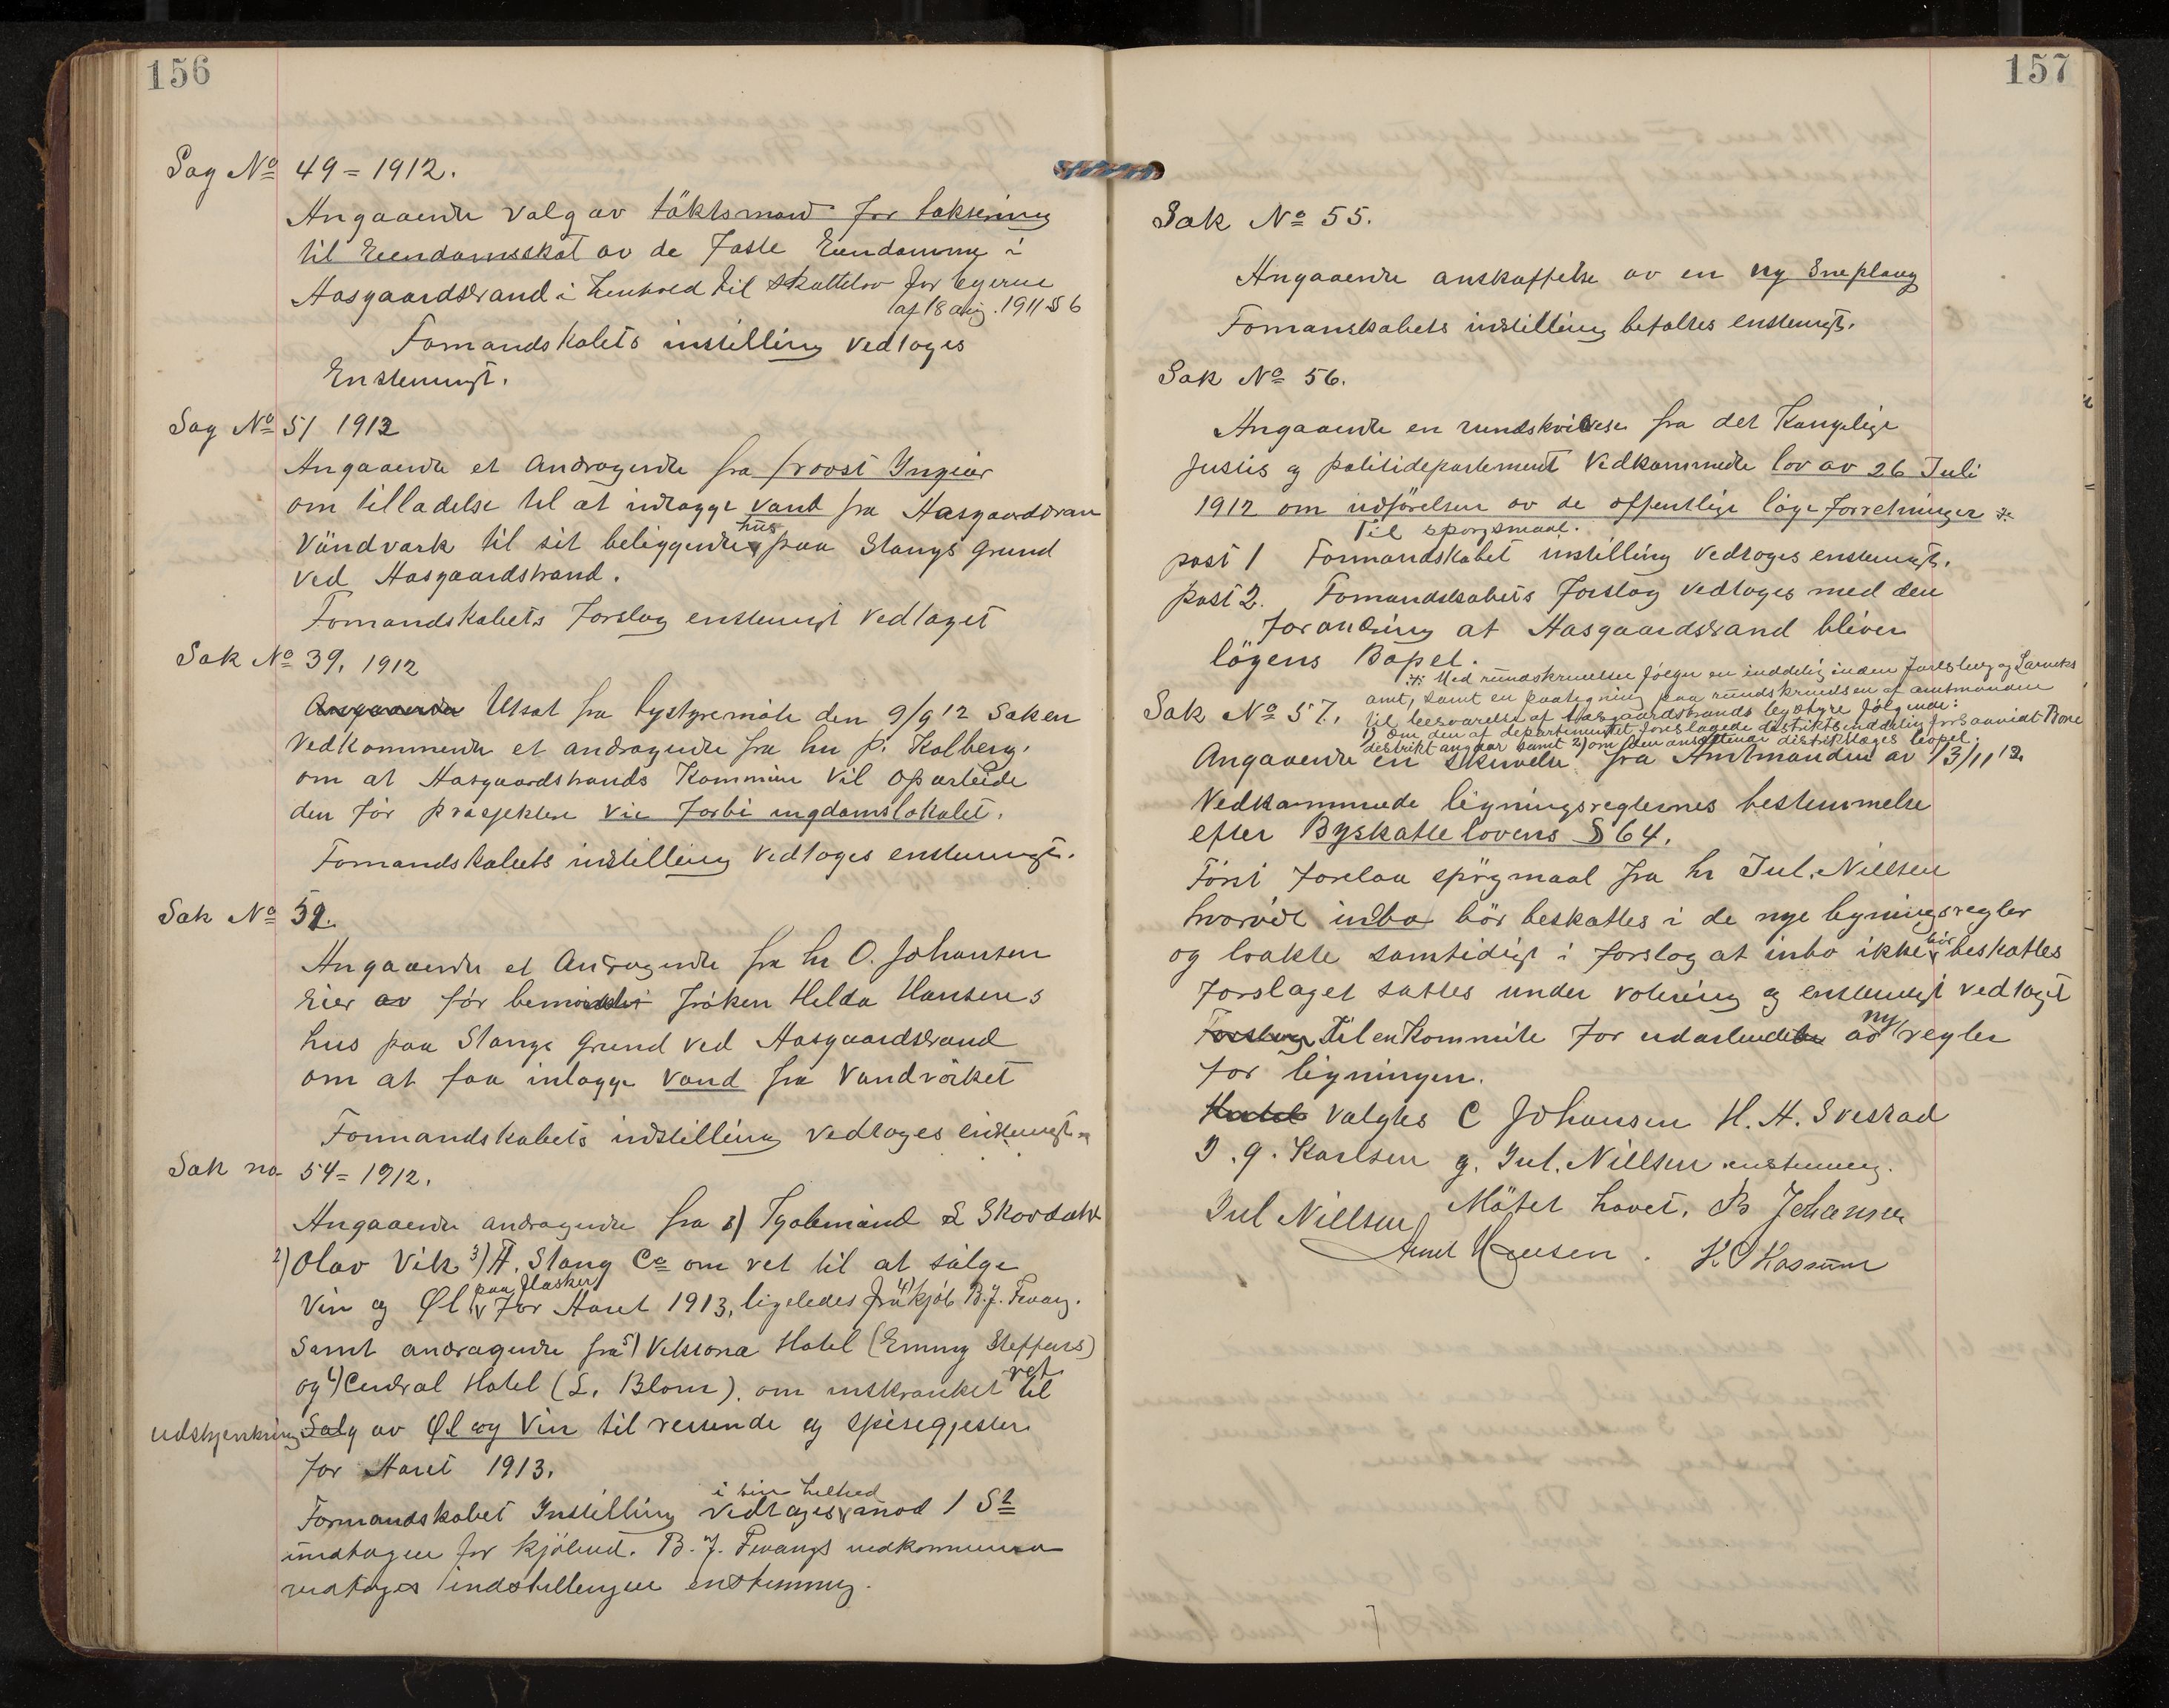 156
Sag No 49 = 1912.
Angaaende valg av täktsmænd for taksering
til Eiendomsskat av de Faste Eiendomme i
Aasgaardstrand i Henhold til Skattelov for byerne
af 18 aug. 1911 § 6
Formandskabets instilling vedtoges
Enstemmigt.
Sag No 51 1912
Angaaende et Andragende fra froost Yngvar
om tilladelse til at indlægge vand fra Aasgaardstran
Vandvärk til sit beliggende hus paa Stangs Grund
ved Aasgaardstrand.
Formandskabets Forslag enstemigt vedtaget
Sak No 39, 1912
Angaaende Utsat fra bystyremöte den 9/9 12 Saken
vedkommende et andragende fra hr P. Kolberg,
om at Aasgaardstrands Kommune vil oparbeide
den för prosjektere vei forbi ungdomslokalet.
Formandskabets instilling vedtoges enstemmigt.
Sak No 52.
Angaaende et Andragende fra hr O. Johansen
Eier av för bemeldte fröken Helda Hansens
hus paa Stangs Grund ved Aasgaardstrand
om at faa inlægge Vand fra Vandvärket
Formandskabets indstilling vedtoges enstemigt
Sak no 54 = 1912.
Angaaende andragende fra 1) Tjøtemand L Skovdahl
2) Olav Vik 3) H. Stang Co om ret til at sälge
Vin og Øl paa flasker for Aaret 1913, ligeledes fra 4) kjøb B.J. Fevang.
Samt andragende fra 5) Viktoria Hotel (Emmy Steffens)
og 6) Central Hotel (L. Blom). om inskränket ret til
udskjenkning Salg av Øl og Vin til reisende og spisegjester
for Aaret 1913.
Formandskabet Instilling vedtages i sin helhed mod 1 St
undtagen for kjøbmd. B. J. Fevangs vedkommende
vedtoges indstillingen enstemmig.
157
Sak No 55.
Angaaende anskaffelse av en ny Sneploug
Formanskabets instilling befaltes enstemigt.
Sak No 56.
Angaaende en rundskrivese fra det Kongelige
Justis og politidepartement Vedkommede lov av 26 Juli
1912 om udförelsen av de offentlige lägeforretninger
Til spørgsmaal.
post 1 Formandskabet instilling vedtoges enstemigt.
post 2. Formandskabets Forslag vedtoges med den
forandring at Aasgaardstrand bliver
lägens Bopel.
Med rundskrivelse følger en inddeling inden Jarlsberg og Larviks
amt, samt en paategning paa rundskrivelsen af amtmanden
til besvarelse af Aasgaardstrands bystyre følgende:
1) Om den af departementet foreslagede distriktsinddeling forsaavidt Borre
destrikt angaar samt 2) om den ansættende distriktslæges bopel.
Sak No 57.
Angaaende en skrivelse fra Amtmanden av 13/11 12.
Vedkommede ligningsreglernes bestemmelse
efter Byskatte lovens § 64.
Först forelaa spörgmaal fra hr Jul. Nielsen
hvorvidt indbo bör beskattes i de nye ligningsregler
og brakte samtidigt i forslag at inbo ikke bör beskattes
Forslaget sattes under votering og enstemigt vedtaget
Forslag Til en Kommite for udarbeidelse av ny regler
for ligningen.
valgtes C Johansen H. A. Svestad
D. G. Karlsen og Jul. Nielsen enstemmig.
Mötet hævet.
Jul Nielsen B Johansen
Arnt Hansen. K O Kossum